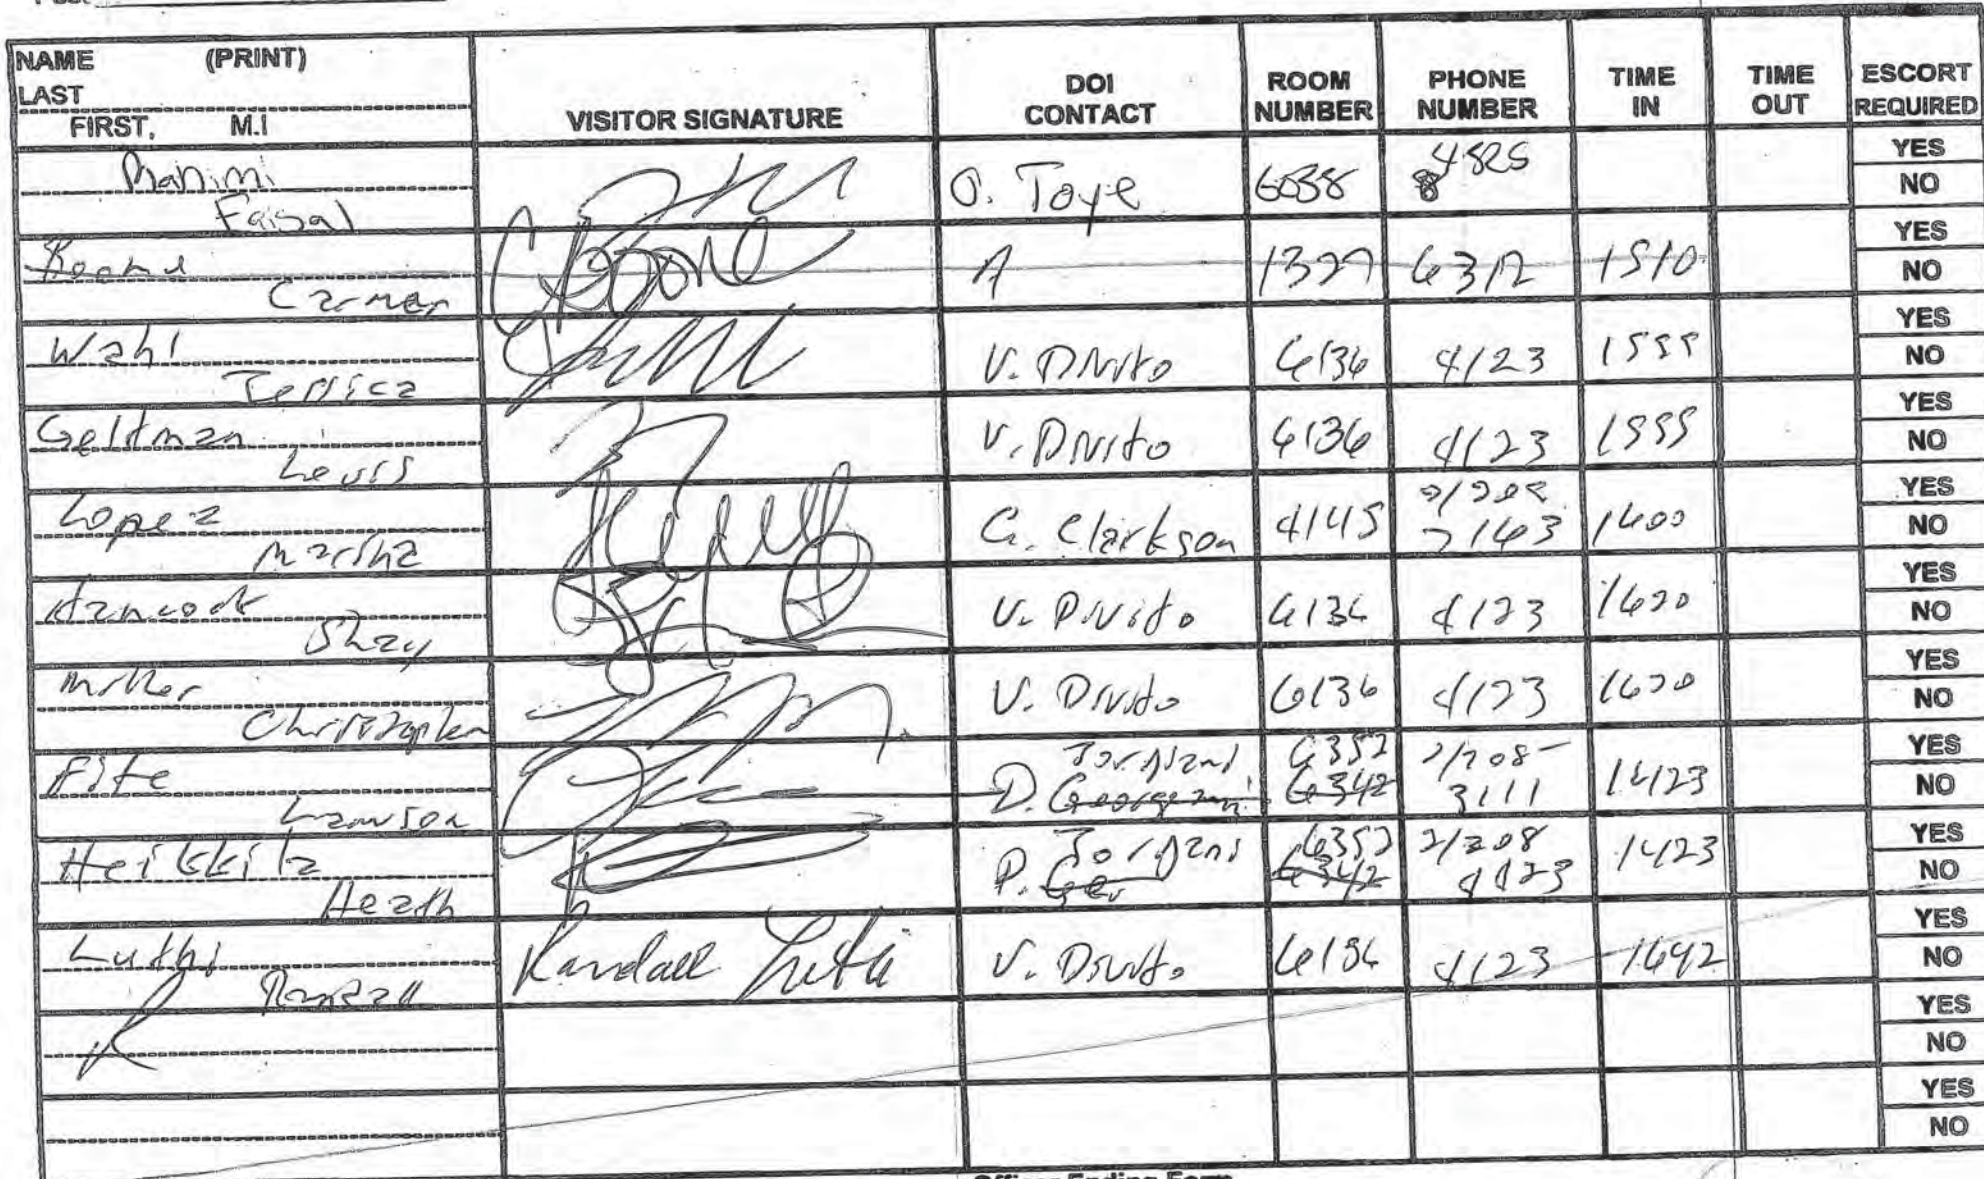 NAME (PRINT)
LAST
FIRST, M.I
VISITOR SIGNATURE
DOI CONTACT
ROOM NUMBER
PHONE NUMBER
TIME IN
TIME OUT
ESCORT REQUIRED
Faisal O. Toye 6038 4825 YES NO
Carmen A 1327 6312 1510 YES NO
Wahl Jessica V. Divito 6136 4123 1555 YES NO
Geldman Louis V. Divito 6136 4123 1555 YES NO
Lopez Marsha C. Clarkson 4145 1600 YES NO
Hancock Shay V. Divito 6136 4123 1620 YES NO
Miller Christopher V. Divito 6136 4123 1620 YES NO
Fite Lawson D. 6352 6342 2/208- 3111 1623 YES NO
Heikkila Heath 6352 6342 2/208 4123 1623 YES NO
Luthi Randall Randall Luthi V. Divito 6136 4123 1642 YES NO
YES NO
YES NO
Officer Ending Form